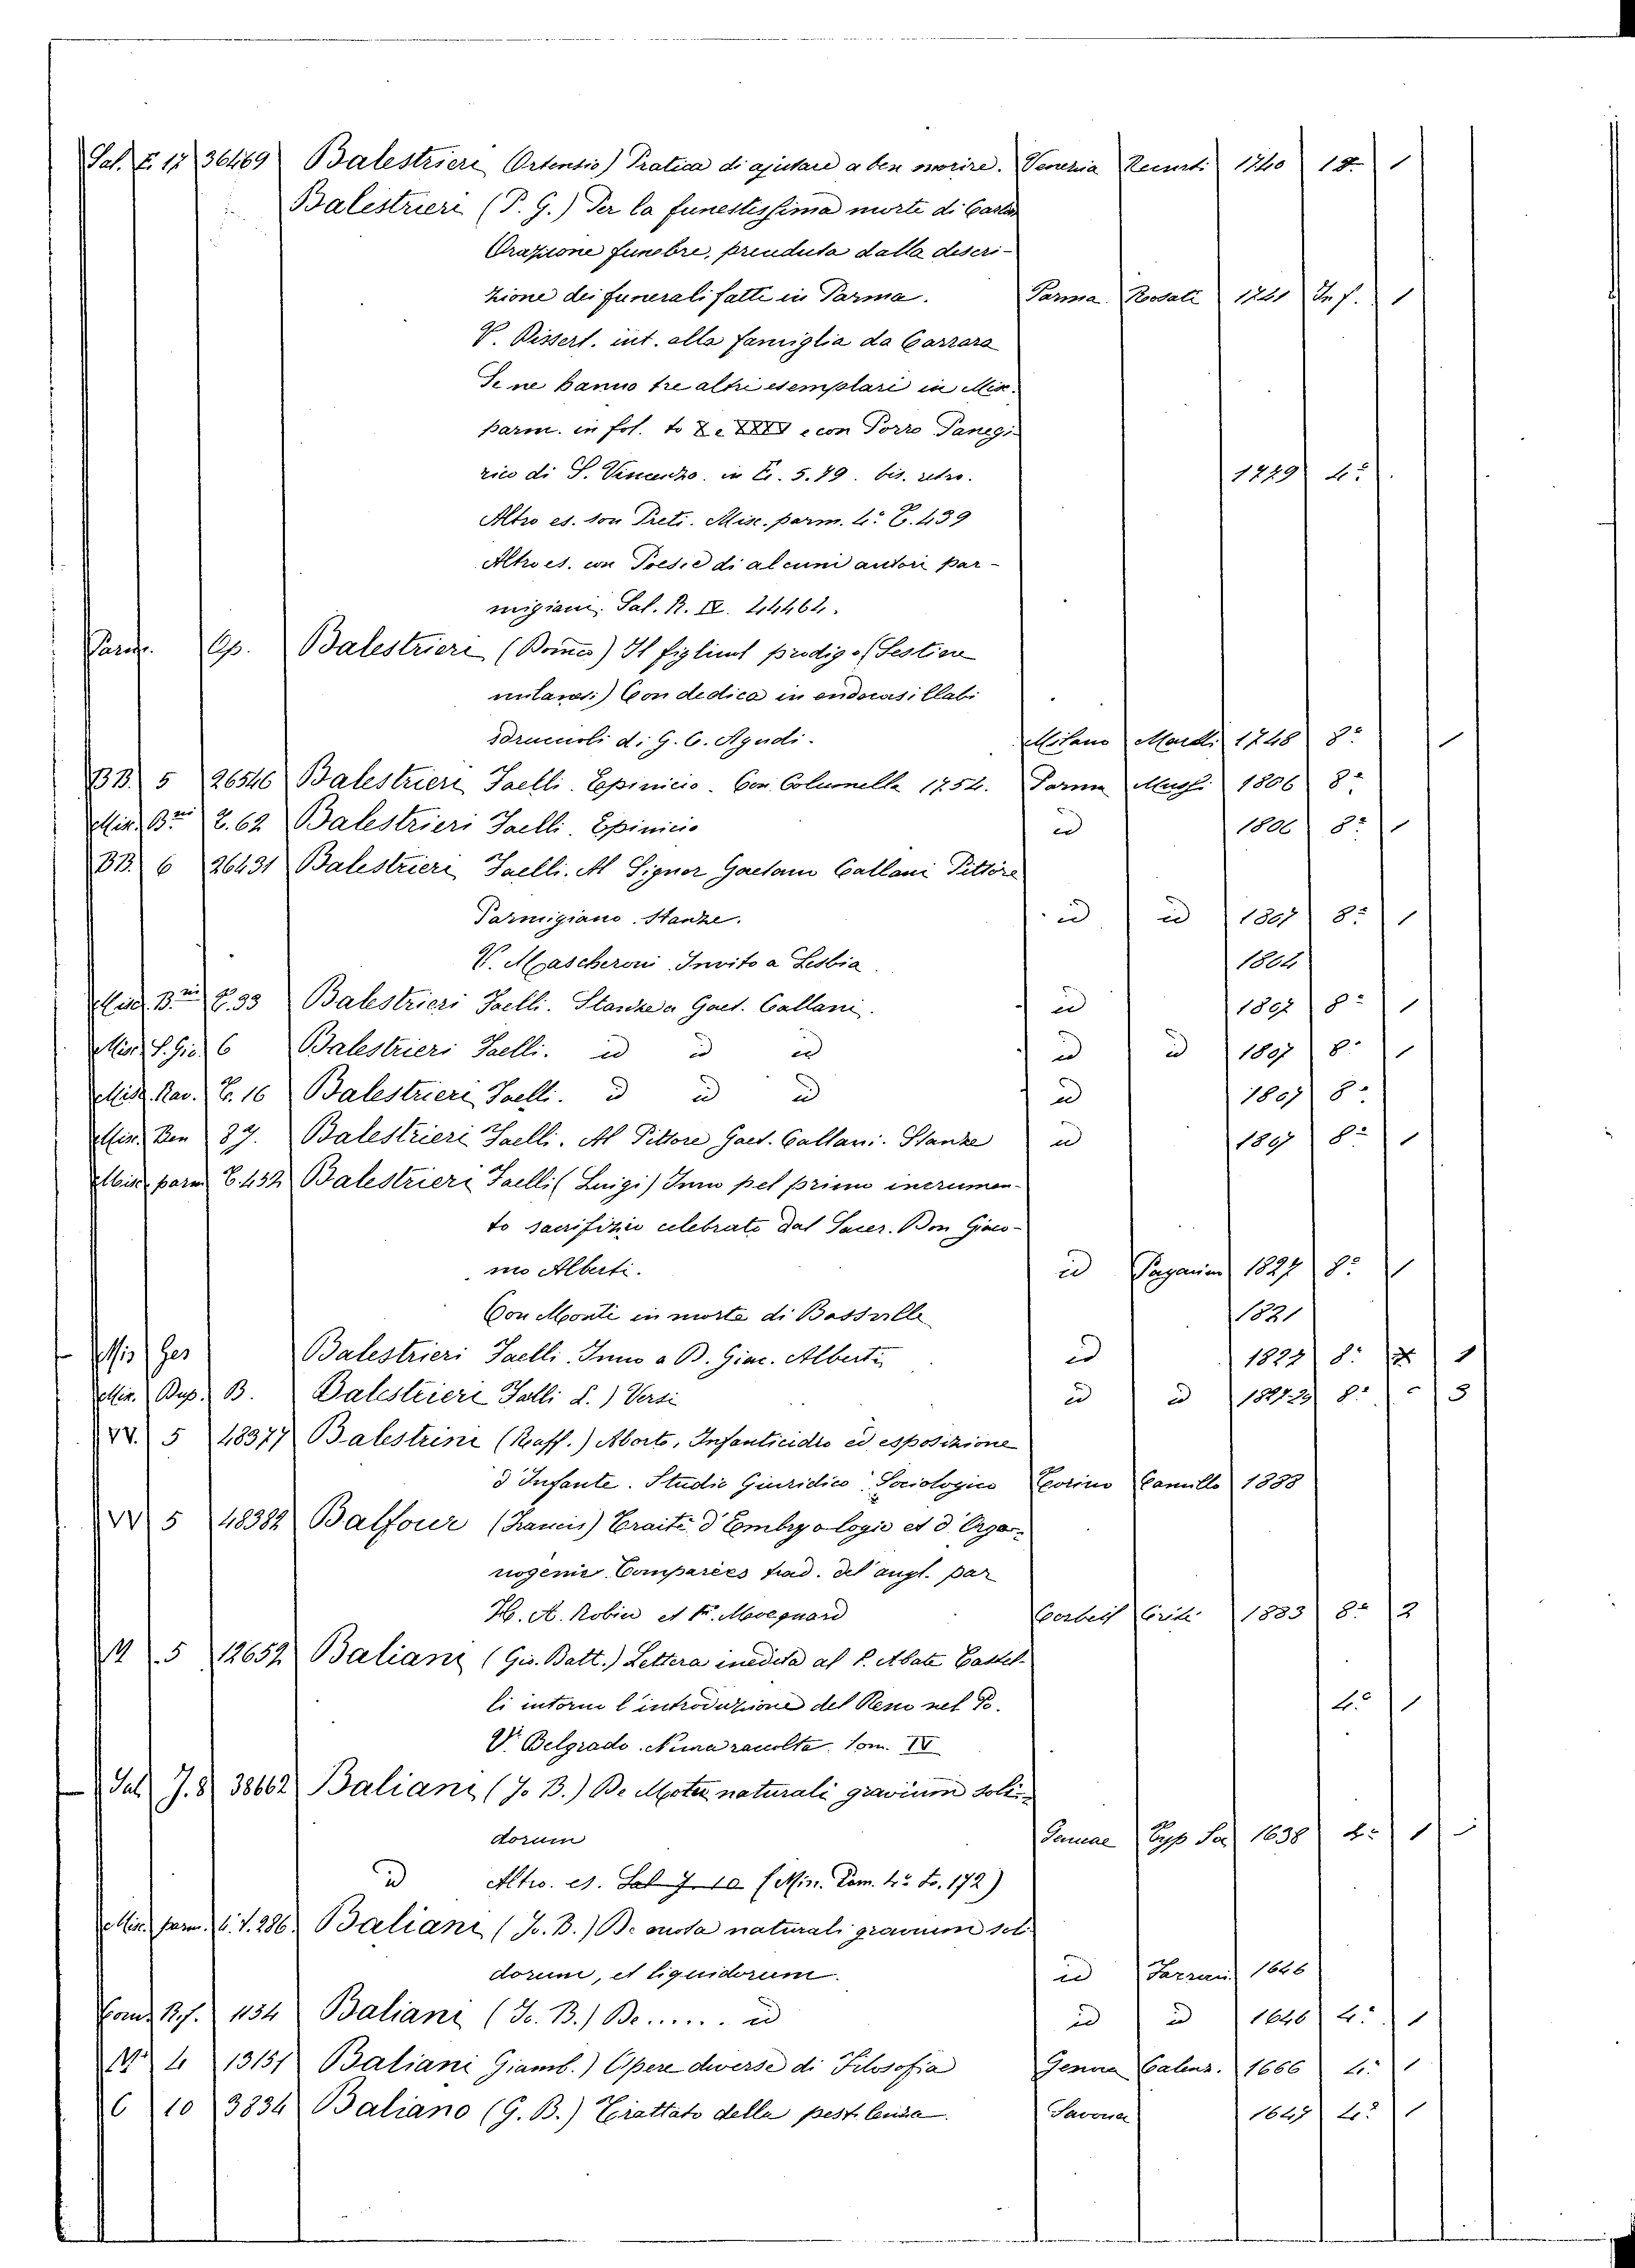 Sal. E. 17 36469 Balestrieri Ortensio) Pratica di ajutare a ben morire. Venezia Recurti 1740 12. 1
Balestrieri (P. G.) Per la funestissima morte di Carlo
Orazione funebre, preceduta dalla descri-
zione dei funerali fatti in Parma. Parma Rosati 1741 In f. 1
V. Dissert. int. alla famiglia da Carrara
Se ne hanno tre altri esemplari in Mix.
parm. in fol. to X e XXIV e con Porro Panegi-
rico di S. Vincenzo. in 5.79. bis. retro. 1729 4.º
Altro es. con Preti. Misc. parm. 4.º C. 439
Altro es. con Poesie di alcuni autori par-
migiani. Sal. R. IX. 24462.
Op. Balestrieri (Domco) Il figliuol prodigo (Sestine
milanesi) Con dedica in endecasillabi
sdruccioli di G. C. Agudi. Milano 1748 8º 1
BB. 5 26546 Balestrieri Jaelli. Epinicio. Con Columella 1754. Parma 1806 8º
62 Balestrieri Jaelli. Epinicio id 1806 8º 1
BB. 6 26431 Balestrieri Jaelli. Al Signor Gaetano Callani Pittore
Parmigiano. Stanze. id id 1807 8º 1
V. Mascheroni. Invito a Lesbia. 1804
33 Balestrieri Jaelli. Stanze a Gaet. Callani. id 1807 8º 1
6 Balestrieri Jaelli. id id id id id 1807 8º 1
16 Balestrieri Jaelli. id id id id 1807 8º
Balestrieri Jaelli. Al Pittore Gaet. Callani. Stanze id 1807 8º 1
parm C. 432 Balestrieri Jaelli (Luigi) Inno pel primo incruen-
to sacrifizio celebrato dal Sacer. Don Giaco-
mo Alberti. id Paganini 1827 8º 1
Con Monti in morte di Bassville 1821
Balestrieri Jaelli. Inno a D. Giac. Alberti id 8º 1
B. Balestrieri Jaelli L.) Versi id id 1827.29 8º 3
VV. 5 48377 Balestrini (Raff.) Aborto, Infanticidio ed esposizione
d'Infante. Studio Giuridico Sociologico Torino Camillo 1888
VV 5 48382 Balfour (Francis) Traité d'Embryologie et d'Orga-
nogenie Comparées trad. de l'angl. par
H. A. Robin et F. Mocquard Corbeil Crété 1883 8º 2
5 12652 Baliani (Gio. Batt.) Lettera inedita al P. Abate Castel-
li intorno l'introduzione del Reno nel Po. 4º 1
V. Belgrado. Nuova raccolta. Tom. IV
Sal J. 8 38662 Baliani (Jo B.) De Motu naturali gravium soli-
dorum Genuae 1638 4º 1
id Altro. es. Sal J. 10 (Min. Dom. 4º to. 172)
Misc. parm. 286 Baliani (Jo. B.) De motu naturali gravium soli
dorum, et liquidorum. id 1646
1134 Baliani (Jo. B.) De ....... id id id 1646 4º 1
4 13151 Baliani Giamb.) Opere diverse di Filosofia Genova Calenz. 1666 4º 1
C 10 3834 Baliano (G. B.) Trattato della pestilenza. Savona 1647 4º 1